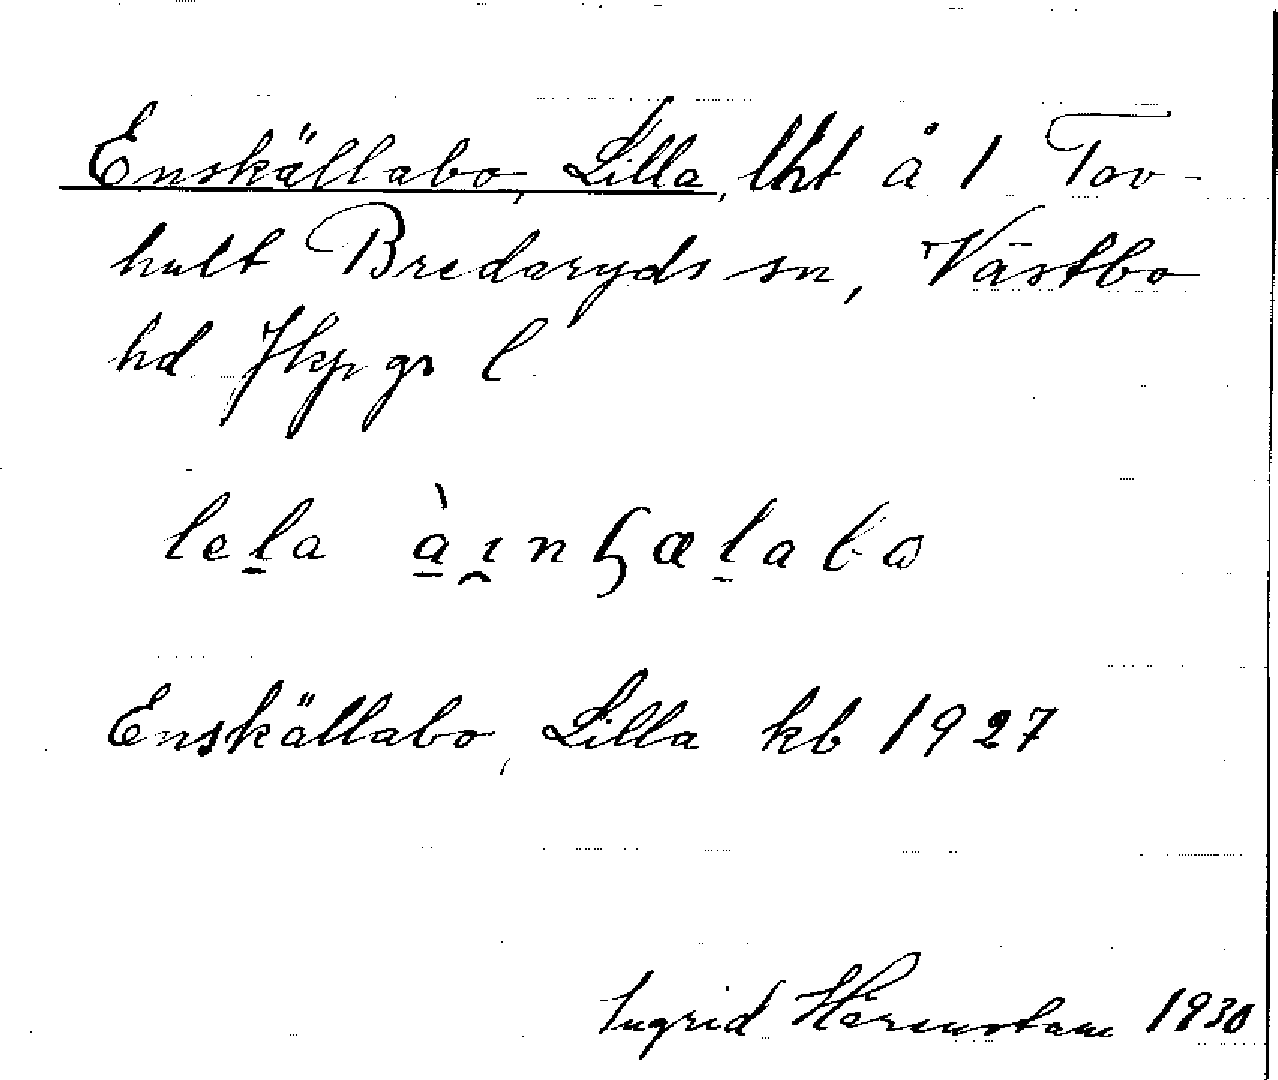 Enskällabo, Lilla, lht å 1 Tov-
hult Bredaryds sn, Västbo
hd Jkpgs l
lela àı̯nɧælabo
Enskällabo, Lilla kb 1927
Ingrid Härenstam 1930